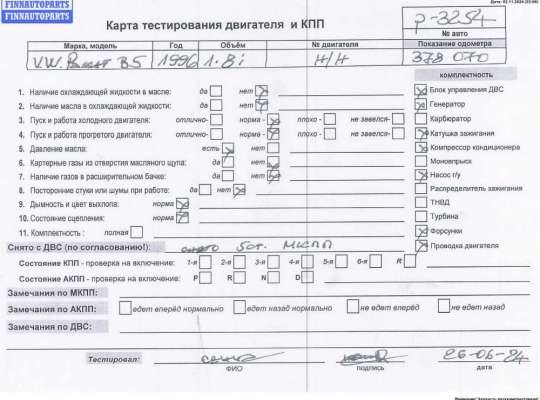 FINNAUTOPARTS
FINNAUTOPARTS
Дата: 02.11.2024
Карта тестирования двигателя и КПП
P-3254
№ авто
Марка, модель Год Объём № двигателя Показание одометра
VW. Passat B5 1996 1.8i Н/Н 378 070
комплектность
1. Наличие охлаждающей жидкости в масле: да нет
2. Наличие масла в охлаждающей жидкости: да нет
3. Пуск и работа холодного двигателя: отлично- норма - плохо - не завелся-
4. Пуск и работа прогретого двигателя: отлично- норма - плохо - не завелся-
5. Давление масла: есть нет
6. Картерные газы из отверстия масляного щупа: да нет
7. Наличие газов в расширительном бачке: да нет
8. Посторонние стуки или шумы при работе: да нет
9. Дымность и цвет выхлопа: норма
10. Состояние сцепления: норма
11. Комплектность : полная
Блок управления ДВС
Генератор
Карбюратор
Катушка зажигания
Компрессор кондиционера
Моновпрыск
Насос г/у
Распределитель зажигания
ТНВД
Турбина
Форсунки
Проводка двигателя
Снято с ДВС (по согласованию!): снято 5ст. МКПП
Состояние КПП - проверка на включение: 1-я 2-я 3-я 4-я 5-я 6-я R
Состояние АКПП - проверка на включение: P R N D
Замечания по МКПП:
Замечания по АКПП: едет вперёд нормально едет назад нормально не едет вперёд не едет назад
Замечания по ДВС:
Тестировал: 26-06-24
ФИО подпись дата